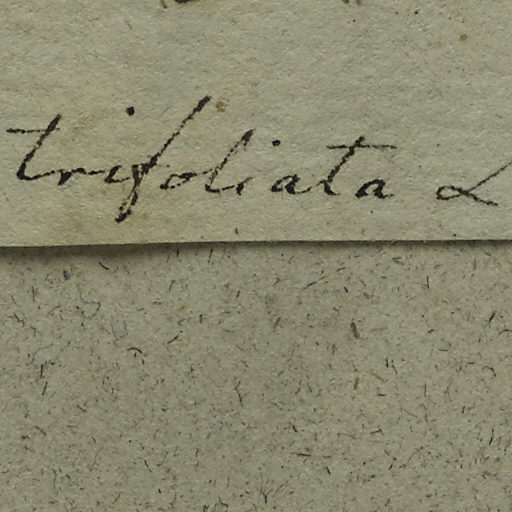 trifoliata L